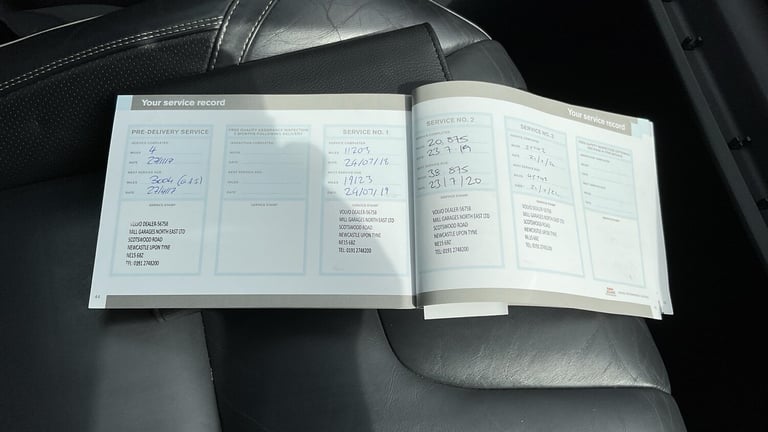 Your service record
PRE-DELIVERY SERVICE
SERVICE COMPLETED
MILES 4
DATE 27/1/17
NEXT SERVICE DUE
MILES 3004
DATE 27/4/17
SERVICE STAMP
VOLVO DEALER-56758
MILL GARAGES NORTH EAST LTD
SCOTSWOOD ROAD
NEWCASTLE UPON TYNE
NE15 6BZ
TEL: 0191 2748200
44
FREE QUALITY ASSURANCE INSPECTION
3 MONTHS FOLLOWING DELIVERY
INSPECTION COMPLETED
MILES
DATE
NEXT SERVICE DUE
MILES
DATE
SERVICE STAMP
SERVICE NO. 1
SERVICE COMPLETED
MILES 11203
DATE 24/07/18
NEXT SERVICE DUE
MILES 19123
DATE 24/07/19
SERVICE STAMP
VOLVO DEALER-56758
MILL GARAGES NORTH EAST LTD
SCOTSWOOD ROAD
NEWCASTLE UPON TYNE
NE15 6BZ
TEL: 0191 2748200
Your service record
SERVICE NO. 2
SERVICE COMPLETED
MILES 20,875
DATE 23.7.19
NEXT SERVICE DUE
MILES 38,875
DATE 23/7/20
SERVICE STAMP
VOLVO DEALER-56758
MILL GARAGES NORTH EAST LTD
SCOTSWOOD ROAD
NEWCASTLE UPON TYNE
NE15 6BZ
TEL: 0191 2748200
SERVICE NO. 3
SERVICE COMPLETED
MILES
DATE
NEXT SERVICE DUE
MILES
DATE
SERVICE STAMP
VOLVO DEALER-56758
MILL GARAGES NORTH EAST LTD
SCOTSWOOD ROAD
NEWCASTLE UPON TYNE
NE15 6BZ
TEL: 0191 2748200
SERVICE STAMP